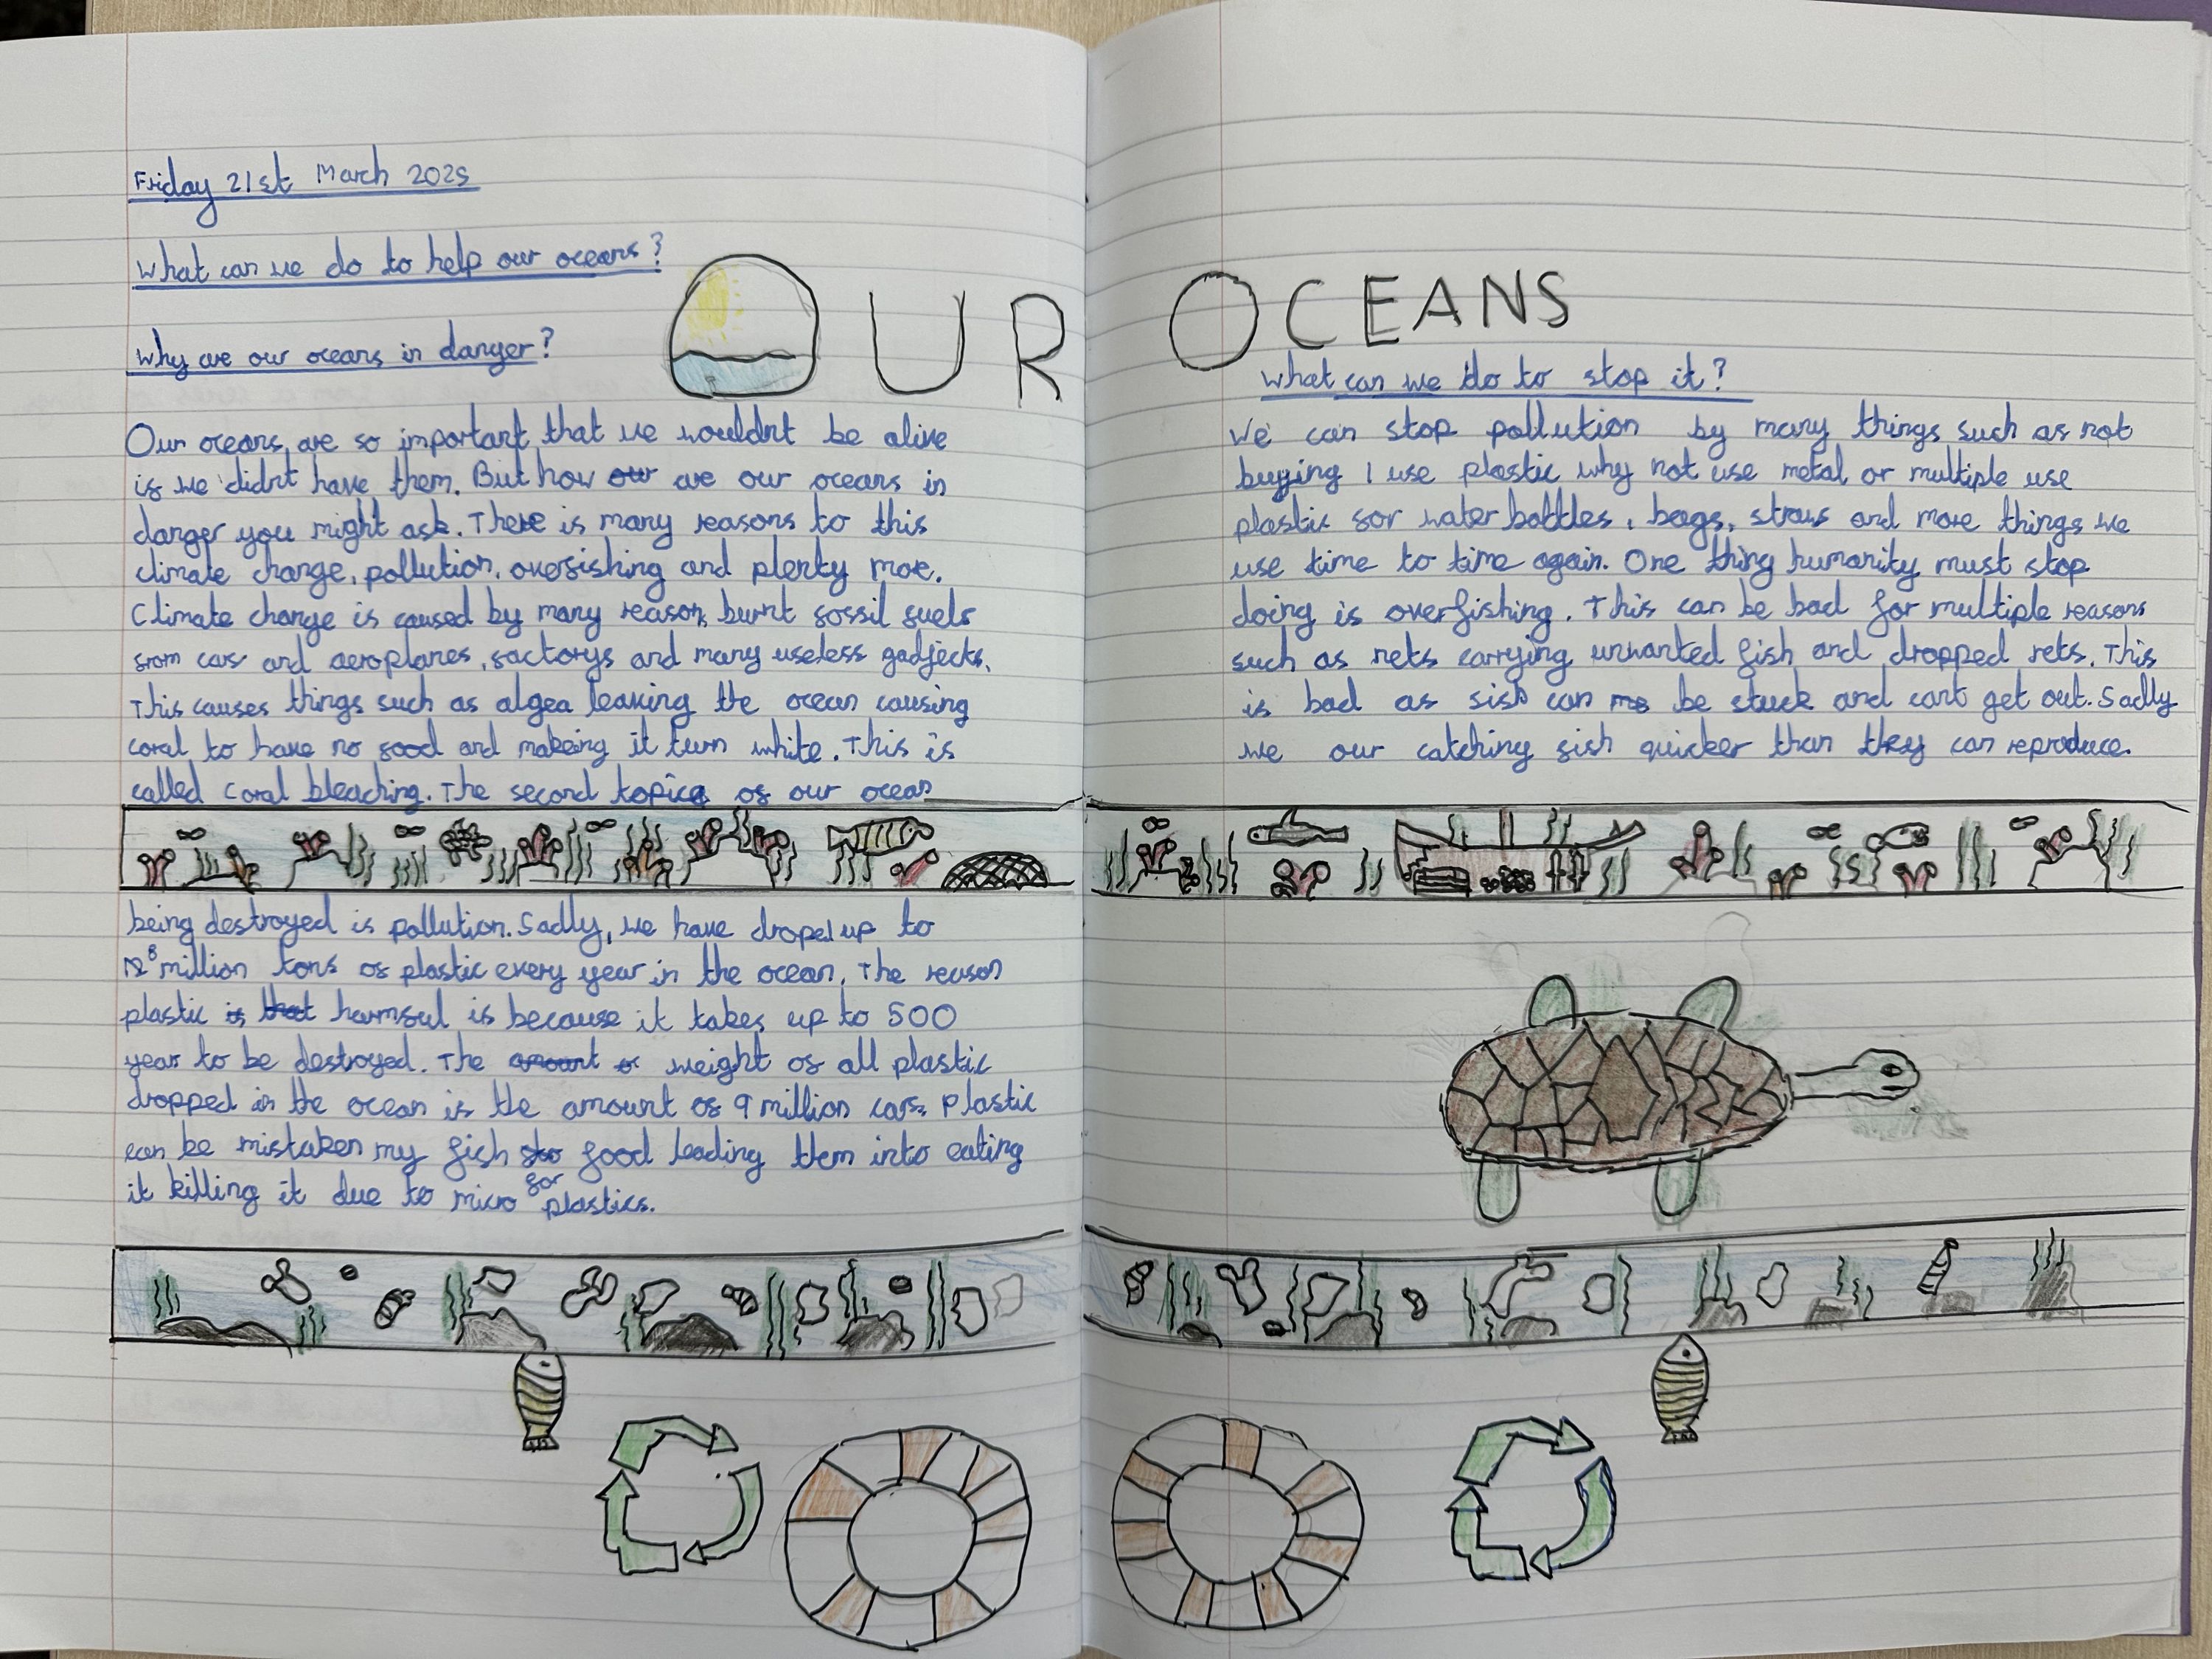 Friday 21st March 2025
What can we do to help our oceans?
Why are our oceans in danger?
OUR
Our oceans are so important that we wouldn't be alive
if we didn't have them. But how our are our oceans in
danger you might ask. There is many reasons to this
climate change, pollution, overfishing and plenty more.
Climate change is caused by many reason, burnt fossil fuels
from cars and aeroplanes, factorys and many useless gadjects.
This causes things such as algea leaving the ocean causing
coral to have no food and makeing it turn white. This is
called coral bleaching. The second topic of our ocean
being destroyed is pollution. Sadly, we have droped up to
million tons of plastic every year in the ocean. The reason
plastic is that harmful is because it takes up to 500
year to be destroyed. The amount of weight of all plastic
dropped in the ocean is the amount of 9 million cars. Plastic
can be mistaken my fish food leading them into eating
for
it killing it due to micro plastics.
OCEANS
What can we do to stop it?
We can stop pollution by many things such as not
buying 1 use plastic why not use metal or multiple use
plastic for water bottles, bags, straws and more things we
use time to time again. One thing humanity must stop
doing is overfishing. This can be bad for multiple reasons
such as nets carrying unwanted fish and dropped nets. This
is bad as fish can be stuck and cant get out. Sadly
we our catching fish quicker than they can reproduce.